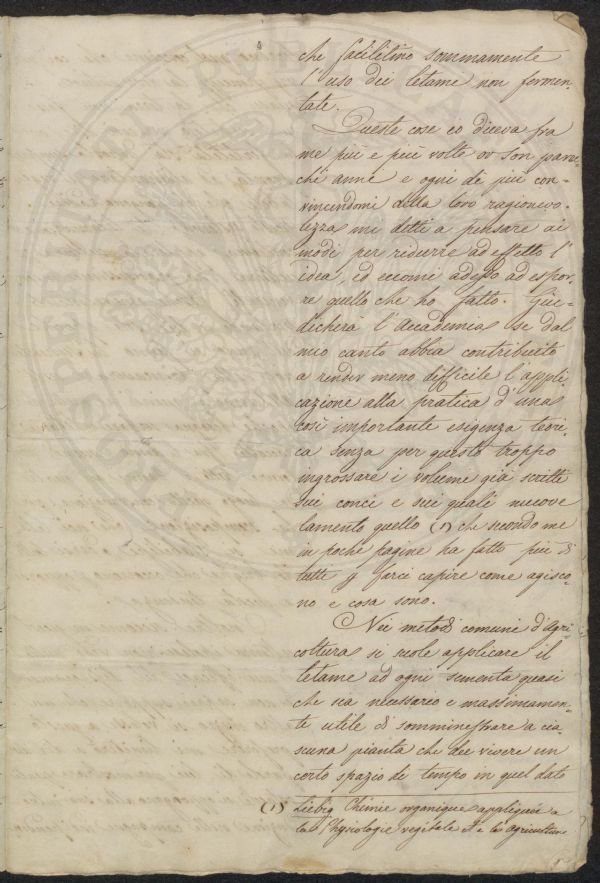 che facilitino sommamente
l'uso dei letame non fermen-
tate.
Queste cose io diceva fra
me più e più volte or son parec-
chi anni e ogni dì più con-
vincendomi della loro ragionevo-
lezza mi detti a pensare ai
modi per ridurre ad effetto l'
idea, ed eccomi adesso ad espor-
re quello che ho fatto. Giu-
dicherà l'Accademia se dal
mio canto abbia contribuito
a render meno difficile l'appli-
cazione alla pratica d'una
così importante esigenza teori-
ca senza per questo troppo
ingrossare i volumi già scritti
sui conci e nei quali
lamento quello (1) che secondo me
in poche pagine ha fatto più di
tutti farci capire come agisco-
no e cosa sono.
Nei metodi comuni d'Agri-
coltura si suole applicare il
letame ad ogni sementa quasi
che sia necessario e massimamen-
te utile di somministrare a cia-
scuna pianta che dee vivere un
corto spazio di tempo in quel dato
(1) Liebig Chimie organique appliquée a
la Physiologie vegetale et a la agriculture
PROSPERITATI PUBLICAE